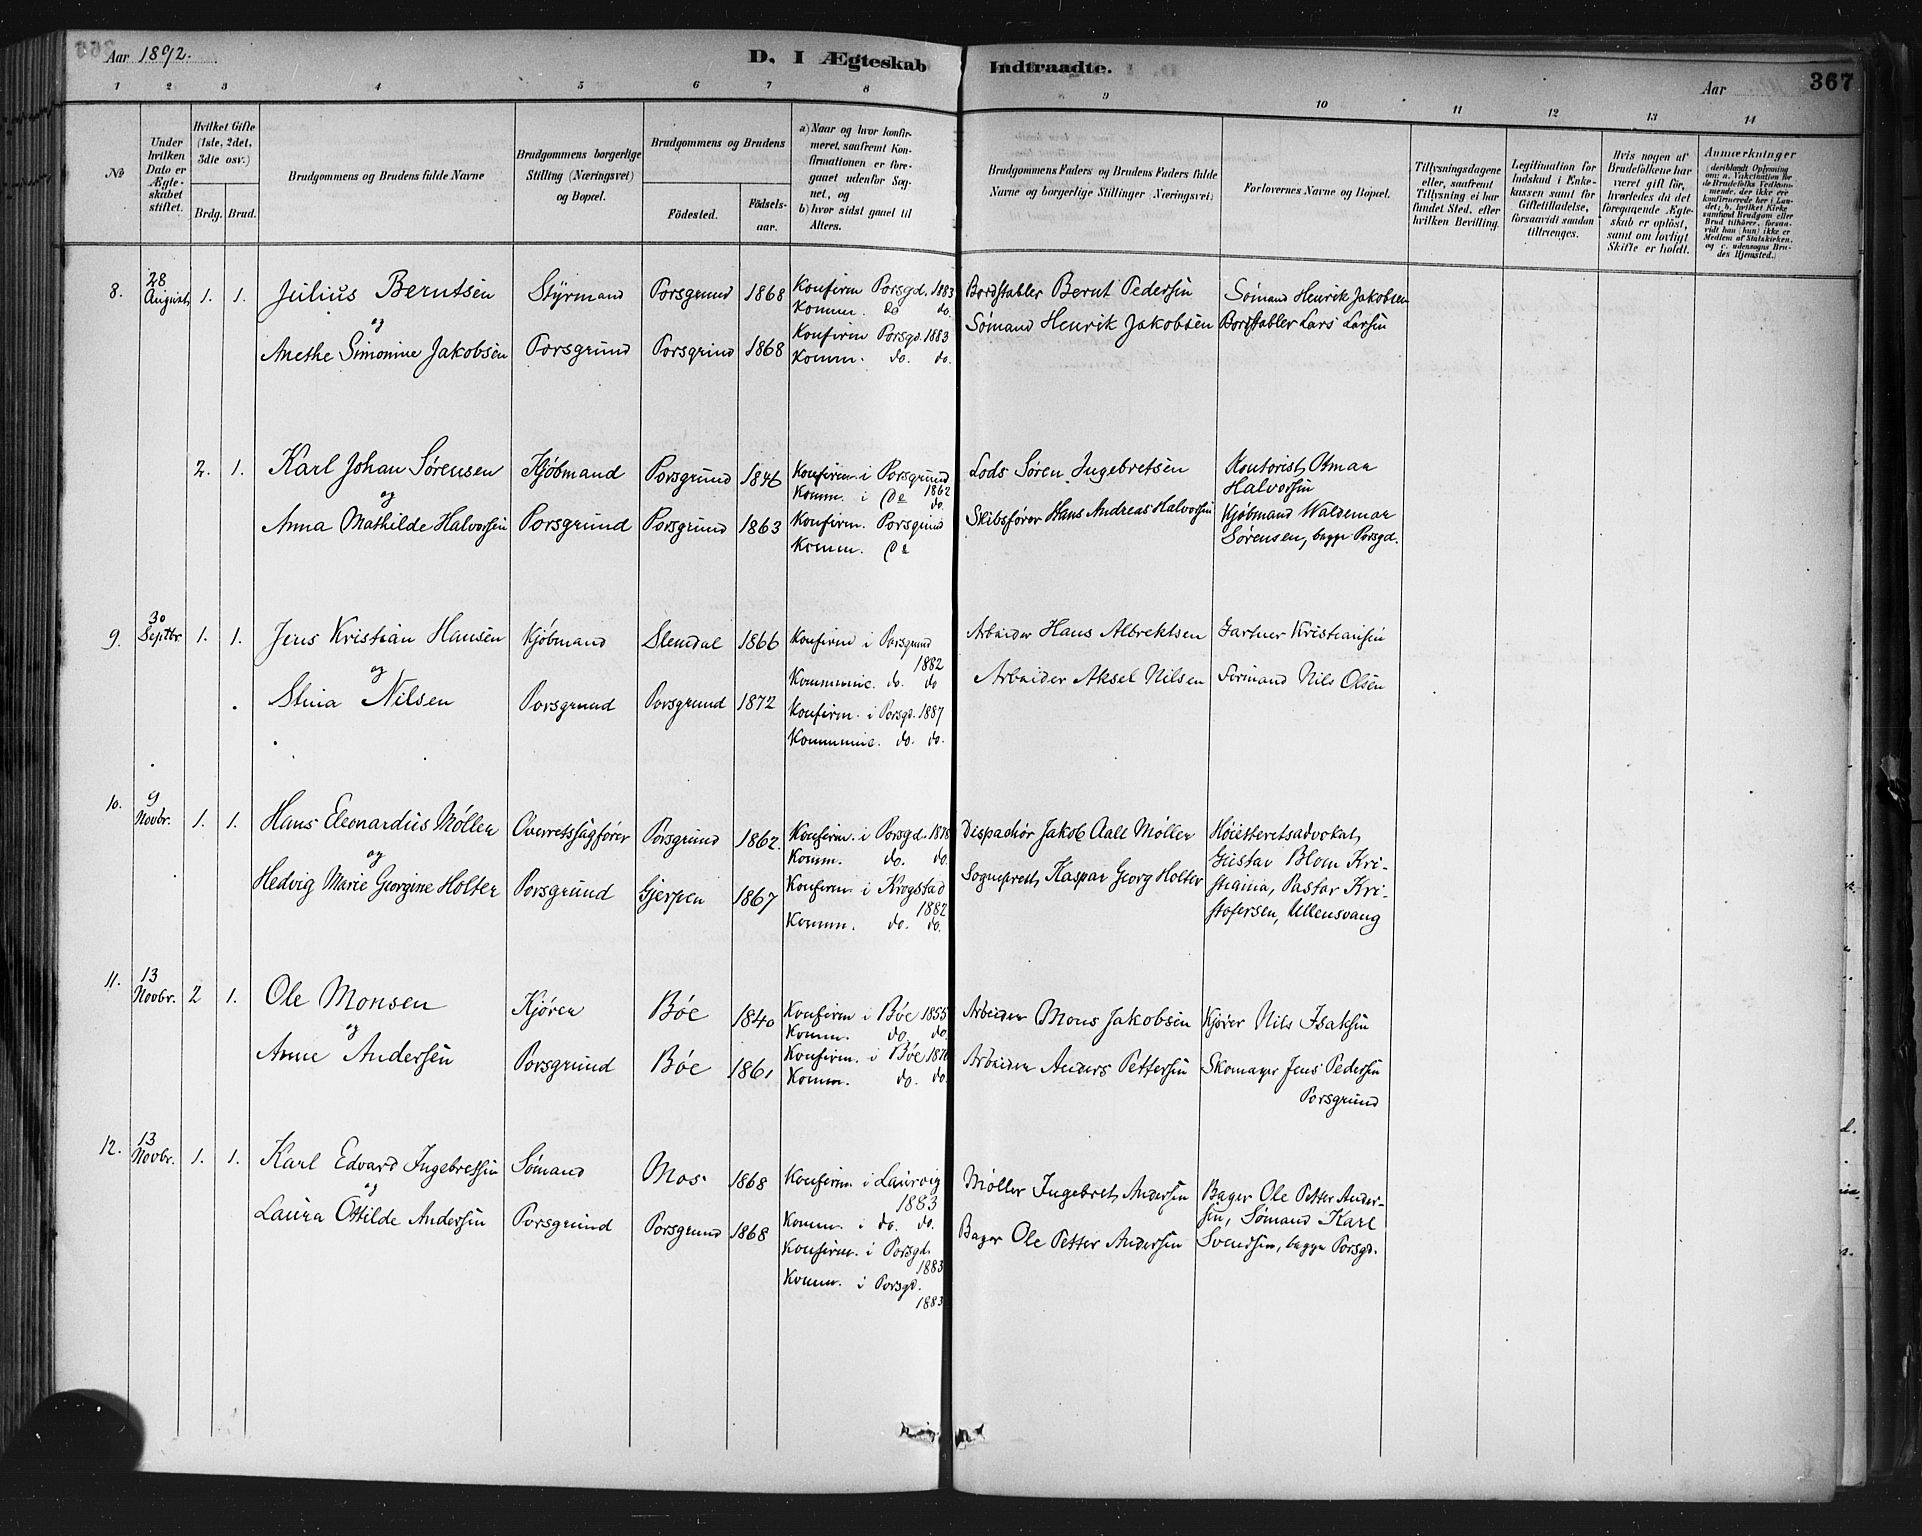 Aar 1892.
D. I Ægteskab Indtraadte.
Aar
367
1 2 3 4 5 6 7 8 9 10 11 12 13 14
No
Under hvilken Dato er Ægteskabet stiftet.
Hvilket Gifte (1ste, 2det, 3die osv.)
Brdg. Brud.
Brudgommens og Brudens fulde Navne
Brudgommens borgerlige Stilling (Næringsvei) og Bopæl.
Brudgommens og Brudens
Födested.
Födsels-aar.
a) Naar og hvor konfirmeret, saafremt Konfirmationen er foregaaet udenfor Sognet, og
b) hvor sidst gaaet til Alters.
Brudgommens Faders og Brudens Faders fulde Navne og borgerlige Stillinger (Næringsvei)
Forlovernes Navne og Bopæl.
Tillysningsdagene eller, saafremt Tillysning ei har fundet Sted, efter hvilken Bevilling.
Legitimation for Indskud i Enkekassen samt for Giftetilladelse, forsaavidt saadan tiltrænges.
Hvis nogen af Brudefolkene har været gift før, hvorledes da det foregaaende Ægteskab er oplöst, samt om lovligt Skifte er holdt.
Anmærkninger
8. 28 August 1. 1. Julius Berntsen Styrmand Porsgrund 1868 Konfirm Porsgd. 1883 Bordstabler Bernt Pedersen Sømand Henrik Jakobsen
og Komm. do do. Sømand Henrik Jakobsen Bordstabler Lars Larsen
Anethe Simonine Jakobsen Porsgrund Porsgrund 1868 Konfirm Porsgd. 1883
Komm. do. do.
2. 1. Karl Johan Sørensen Kjøbmand Porsgrund 1846 Konfirm i Porsgrund 1862 Lods Søren Ingebretsen Kontorist Otmar
og Komm. i do do. Halvorsen
Anna Mathilde Halvorsen Porsgrund Porsgrund 1863 Konfirm. Porsgrund Skibsfører Hans Andreas Halvorsen Kjøbmand Waldemar
Komm. do Sørensen, begge Porsgd.
9. 30 Septbr. 1. 1. Jens Kristian Hansen Kjøbmand Slemdal 1866 Konfirm i Porsgrund 1882 Arbeider Hans Albrektsen Gartner Kristiansen
og Kommunic. do. do
Stina Nilsen Porsgrund Porsgrund 1872 Konfirm. i Porsgd. 1887 Arbeider Aksel Nilsen Formand Nils Olsen
Kommunic. do. do.
10. 9 Novbr. 1. 1. Hans Eleonardus Møller Overretssagfører Porsgrund 1862. Konfirm. i Porsgd. 1878 Dispachør Jakob Aall Møller Høiesteretsadvokat
og Komm. do. do. Gustav Blom Kri-
Hedvig Marie Georgine Holter Porsgrund Gjerpen 1867 Konfirm. i Krogstad 1882 Sogneprest Kaspar Georg Holter stiania, Pastor Kri-
Komm. do. do. stofersen, Ullensvang
11. 13 Novbr. 2 1. Ole Monsen Kjører Bóe 1840 Konfirm i Bóe 1855 Arbeider Mons Jakobsen Kjører Nils Isaksen
og Komm. do. do.
Anne Andersen Porsgrund Bóe 1861 Konfirm. i Bóe 1876 Arbeider Anders Pettersen Skomager Jens Pedersen
Komm. do. do. Porsgrund
12. 13 Novbr. 1. 1. Karl Edvard Ingebretsen Sømand Mos 1868 Konfirm i Laurvig 1883 Møller Ingebret Andersen Bager Ole Petter Ander-
og Komm. i do. do. sen, Sømand Karl
Laura Ottilde Andersen Porsgrund Porsgrund 1868 Konfirm. i Porsgd. 1883 Bager Ole Petter Andersen Svendsen, begge Porsgd.
Komm. i Porsgd. 1883